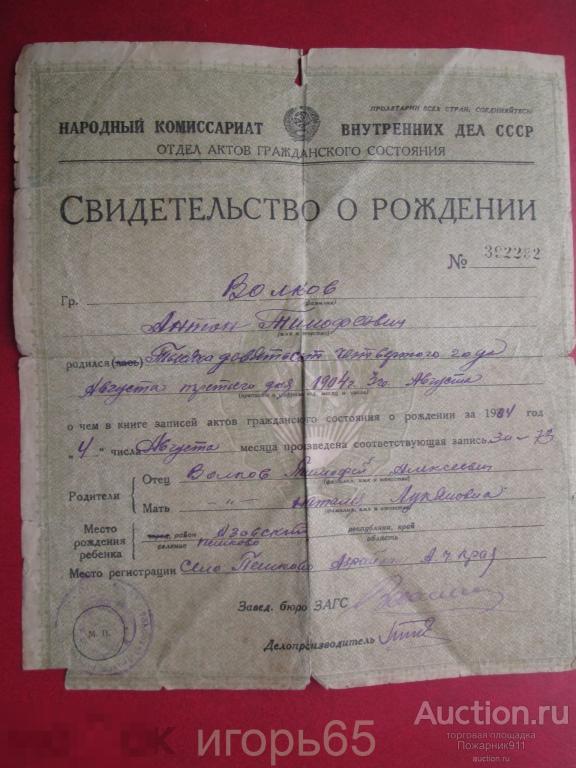 ПРОЛЕТАРИИ ВСЕХ СТРАН, СОЕДИНЯЙТЕСЬ!
НАРОДНЫЙ КОМИССАРИАТ ВНУТРЕННИХ ДЕЛ СССР
ОТДЕЛ АКТОВ ГРАЖДАНСКОГО СОСТОЯНИЯ
СВИДЕТЕЛЬСТВО О РОЖДЕНИИ
№ 392282
Гр. Волков
(фамилия)
Антон Тимофеевич
(имя и отчество)
родился (лась) Тысяча девятьсот четвертого года
Августа третьего дня 1904 г. 3го Августа
(прописью и цифрами год, месяц и число)
о чем в книге записей актов гражданского состояния о рождении за 1904 год
"4" числа Августа месяца произведена соответствующая запись за № 73
Родители
Отец Волков Тимофей Алексеевич
(фамилия, имя и отчество)
Мать -"- -"- Наталья Лукяновна
(фамилия, имя и отчество)
Место рождения ребенка
город, район Азовский республика, край
селение Пешково область
Место регистрации Село Пешково Аз район А. Ч. Края
Завед. бюро ЗАГС
Делопроизводитель
М. П.
игорь65
Auction.ru
торговая площадка
Пожарник911
auction.ru